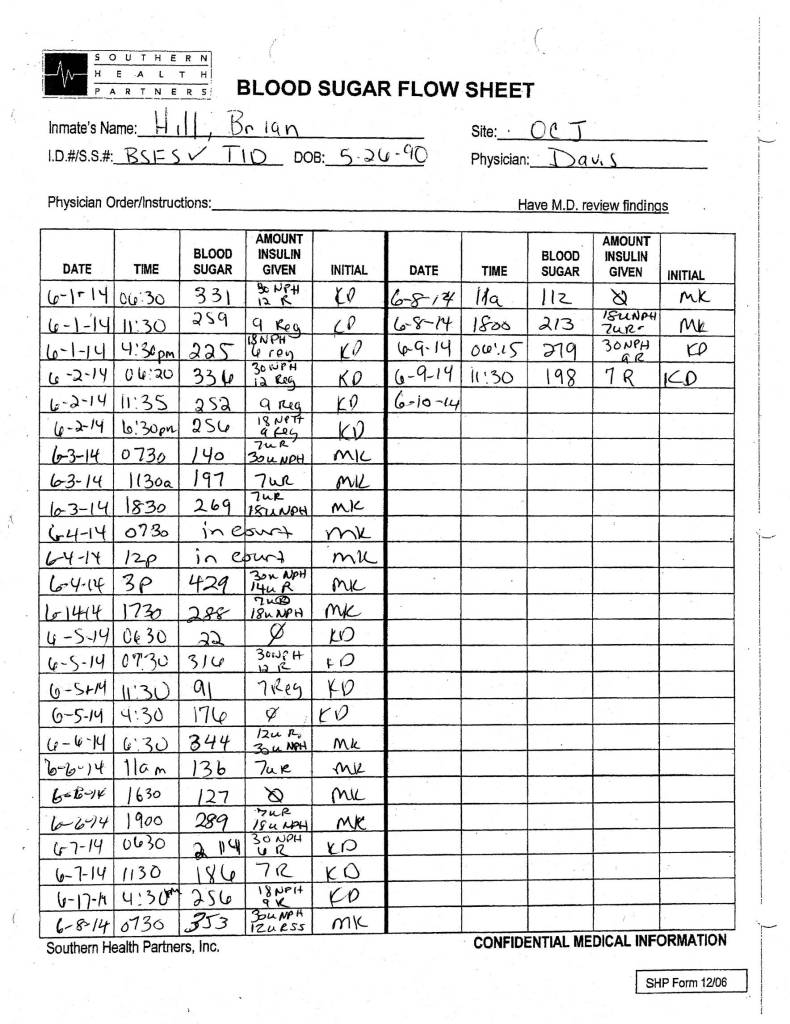 SOUTHERN
HEALTH
PARTNERS
BLOOD SUGAR FLOW SHEET
Inmate's Name: Hill, Brian Site: OCJ
I.D.#/S.S.#: BSFS✓ TID DOB: 5-26-90 Physician: Davis
Physician Order/Instructions: Have M.D. review findings
DATE TIME BLOOD SUGAR AMOUNT INSULIN GIVEN INITIAL DATE TIME BLOOD SUGAR AMOUNT INSULIN GIVEN INITIAL
6-1-14 06:30 331 30 NPH 12 R KD 6-8-14 11a 112 Ø MK
6-1-14 11:30 259 9 Reg KD 6-8-14 1800 213 18u NPH 7uR MK
6-1-14 4:30pm 225 18 NPH 6 reg KD 6-9-14 06:15 279 30 NPH 9R KD
6-2-14 06:20 336 30 NPH 12 Reg KD 6-9-14 11:30 198 7 R KD
6-2-14 11:35 252 9 Reg KD 6-10-14
6-2-14 6:30pm 256 18 NPH 9 Reg KD
6-3-14 0730 140 7uR 30u NPH MK
6-3-14 1130a 197 7uR MK
6-3-14 1830 269 7uR 18u NPH MK
6-4-14 0730 in court MK
6-4-14 12p in court MK
6-4-14 3p 429 30u NPH 14u R MK
6-1414 1730 288 7uR 18u NPH MK
6-5-14 0630 22 Ø KD
6-5-14 07:30 316 30 NPH 12 R KD
6-5-14 11:30 91 7 Reg KD
6-5-14 4:30 176 Ø KD
6-6-14 6:30 344 12u R, 30u NPH MK
6-6-14 11am 136 7uR MK
6-6-14 1630 127 Ø MK
6-6-14 1900 289 7uR 18u NPH MK
6-7-14 0630 30 NPH 6 R KD
6-7-14 1130 186 7 R KD
6-17-14 4:30pm 256 18 NPH 9 R KD
6-8-14 0730 353 30u NPH 12u RSS MK
Southern Health Partners, Inc. CONFIDENTIAL MEDICAL INFORMATION
SHP Form 12/06